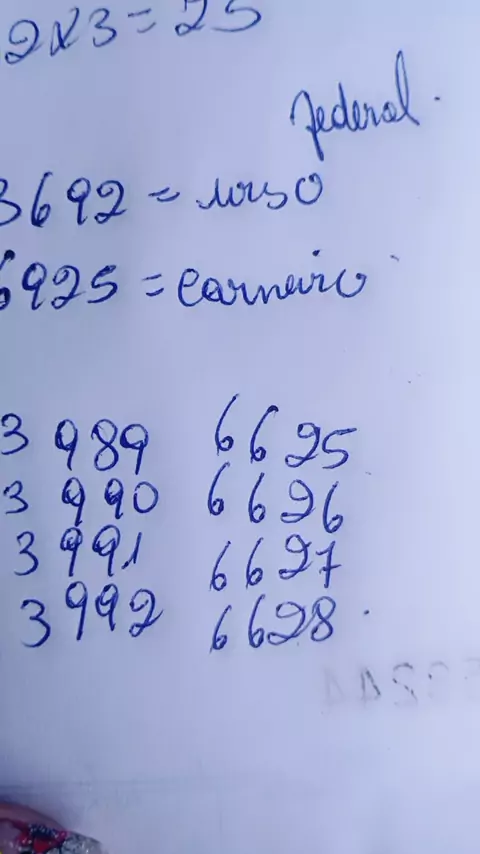 2x3=25
federal.
3692 = urso
6925 = carneiro
3989 6625
3990 6626
3991 6627
3992 6628.